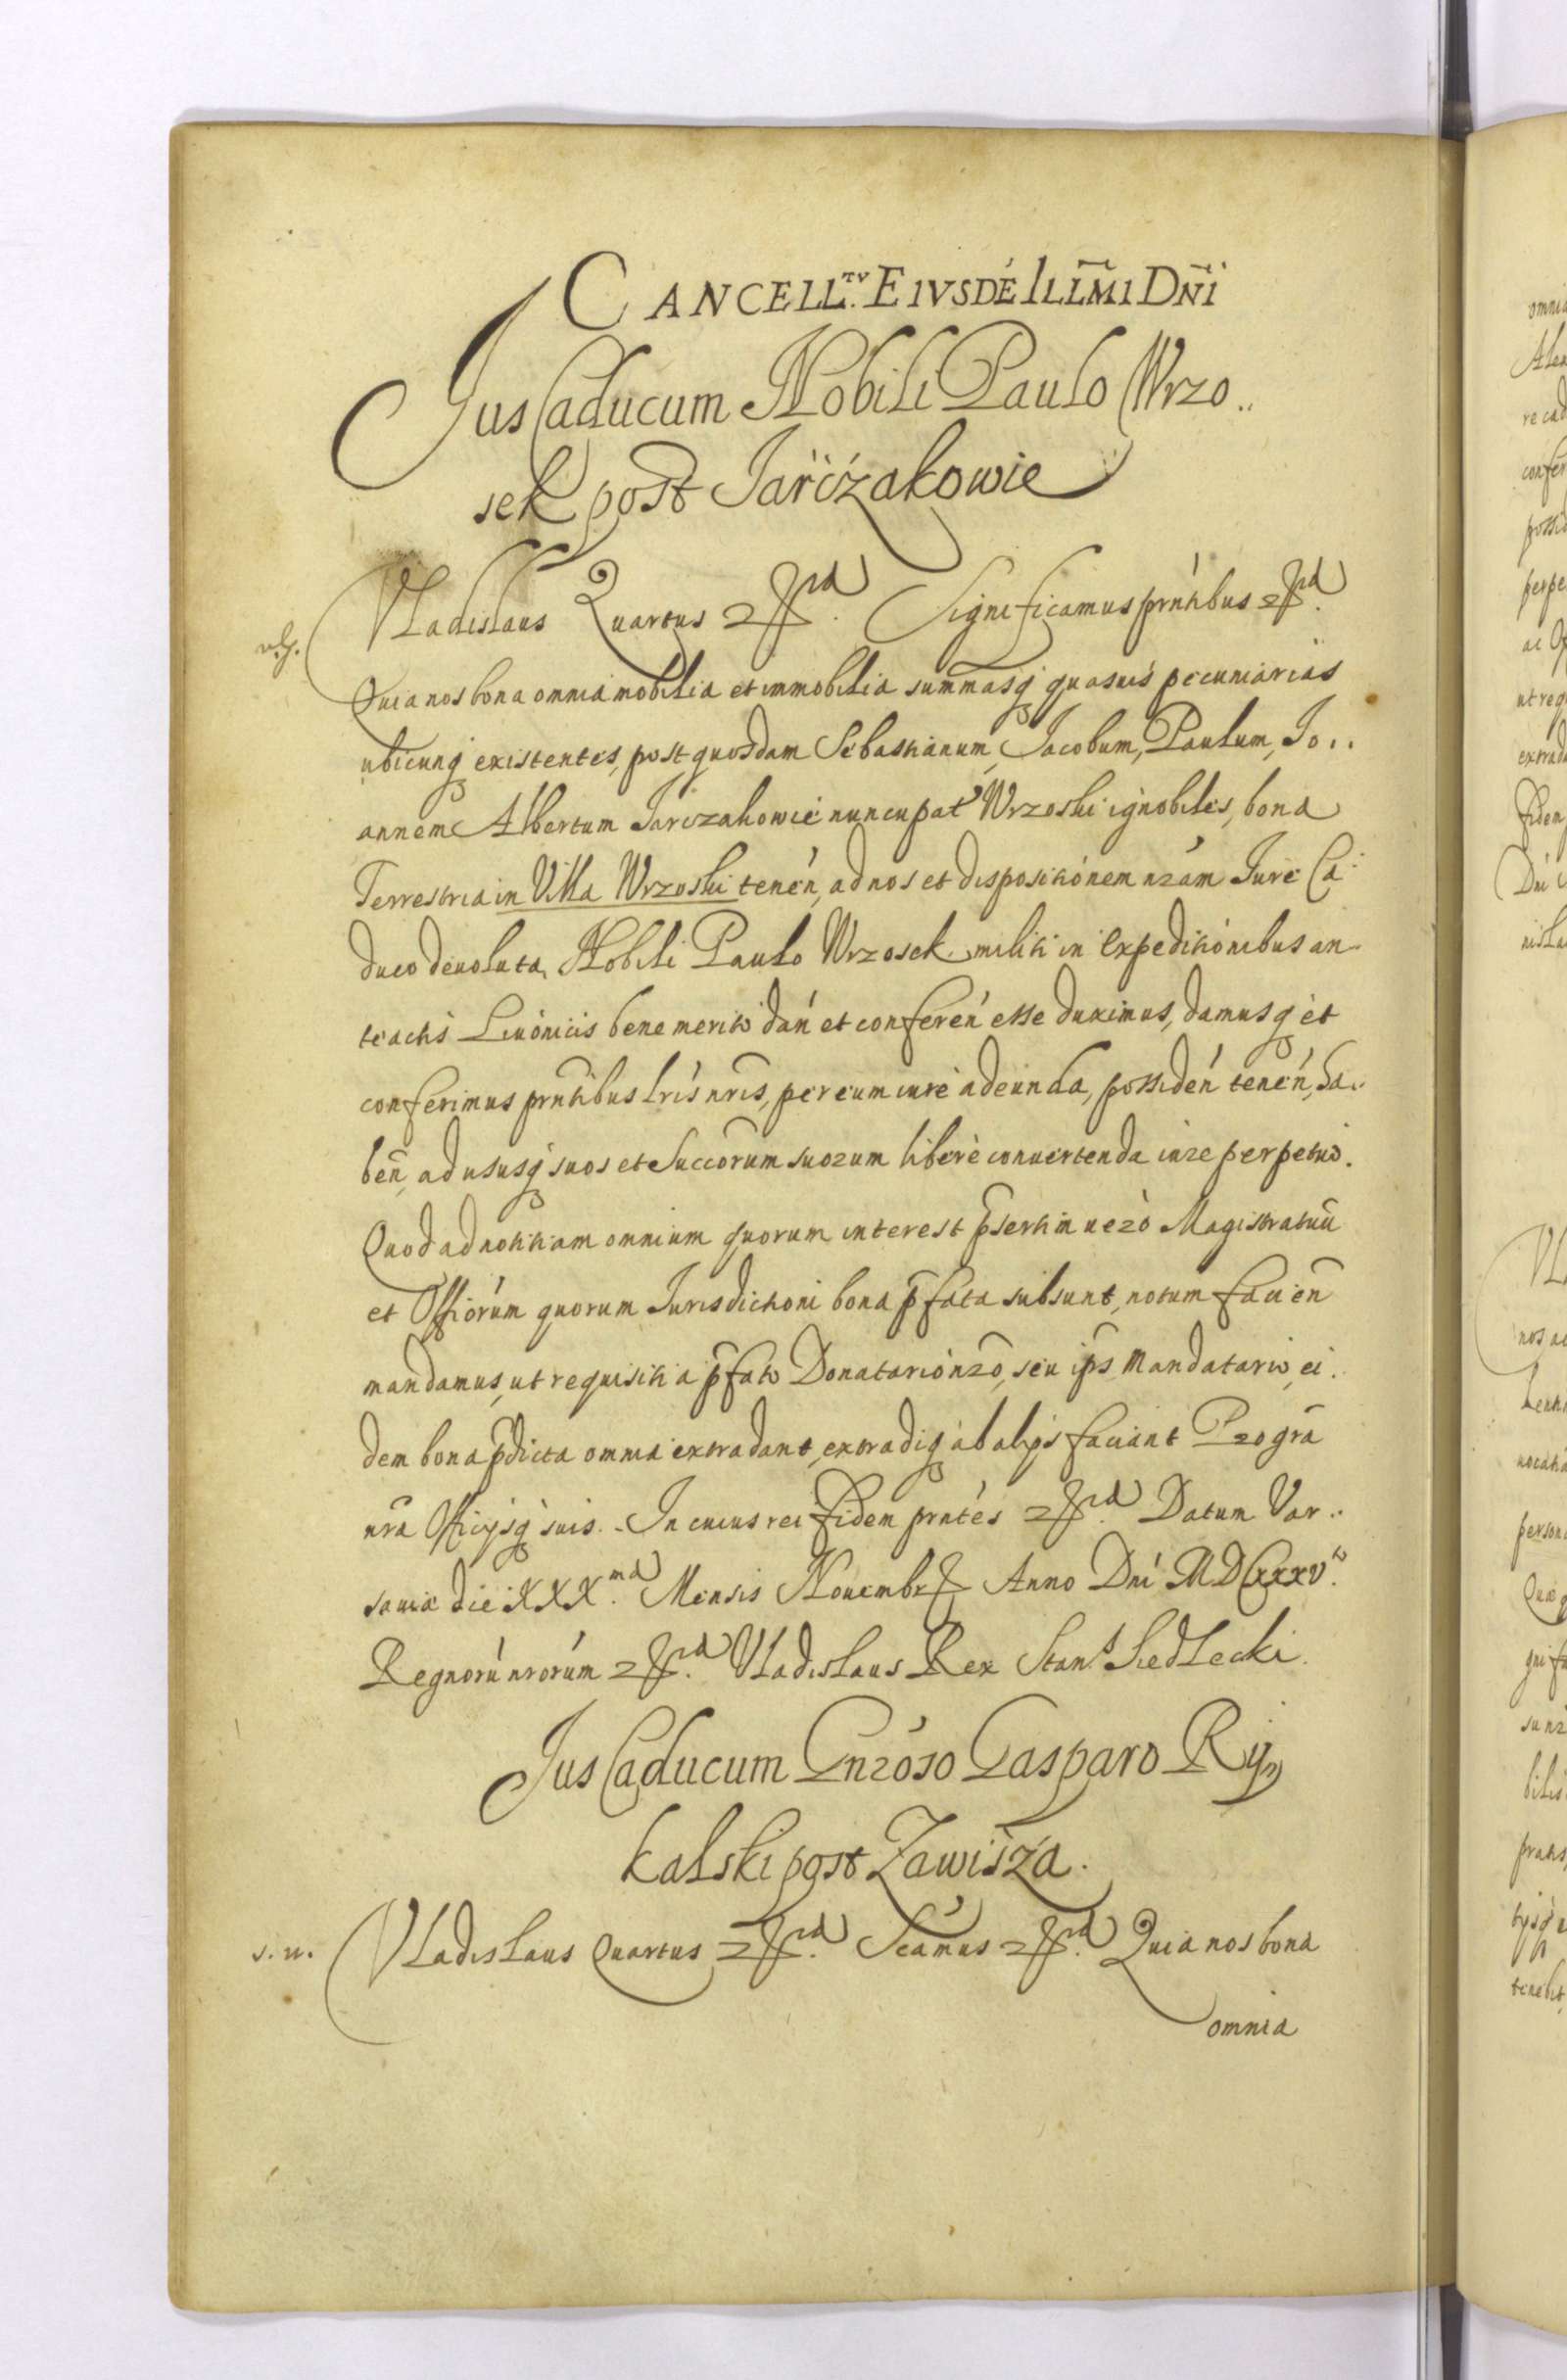 CANCELL.TV EIVSDĒ ILLM̃I DÑI
Jus Caducum Nobili Paulo Wrzo..
sek post Jarczakowie
Vladislaus Quartus etc. Significamus prñtibus etc.
Quia nos bona omnia mobilia et immobilia summasq̨ quasuis pecuniarias
ubicunq̨ existentes, post quosdam Sebastianum, Jacobum, Paulum, Jo..
annem Albertum Jarczakowie nuncupat Wrzoski ignobiles, bona
Terrestria in Villa Wrzoski tenen̄, ad nos et dispositionem nr̃am Jure Ca
duco deuoluta, Nobili Paulo Wrzosek militi in expeditionibus an
teactis Liuonicis bene merito dan̄ et conferen̄ esse duximus, damusq̨ et
conferimus prñtibus lr̃is nr̃is, per eum iure adeunda, possiden̄ tenen̄, ha..
ben̄, ad ususq̨ suos et Succorum suorum libere conuertenda iure perpetuo.
Quod ad notitiam omnium quorum interest p̃sertim uero Magistratuū
et Offiorum quorum Jurisdictioni bona p̃fata subsunt, notum facien̄
mandamus, ut requisiti a p̃fato Donatario nr̃o, seu ips Mandatario, ei.
dem bona p̃dicta omnia extradant, extradiq̨ ab alijs faciant Pro grã
nr̃a Officijsq̨ suis. In cuius rei fidem prñtes etc. Datum Var..
sauiæ die XXX.ma Mensis Nouembr Anno Dnī MDCXXXV.to
Regnorū nrorum etc. Vladislaus Rex Stan.s Siedlecki.
Jus Caducum Gnroso Gasparo Ry
kalski post Zawisza.
s. u. Vladislaus Quartus etc. Scamus etc. Quia nos bona
omnia